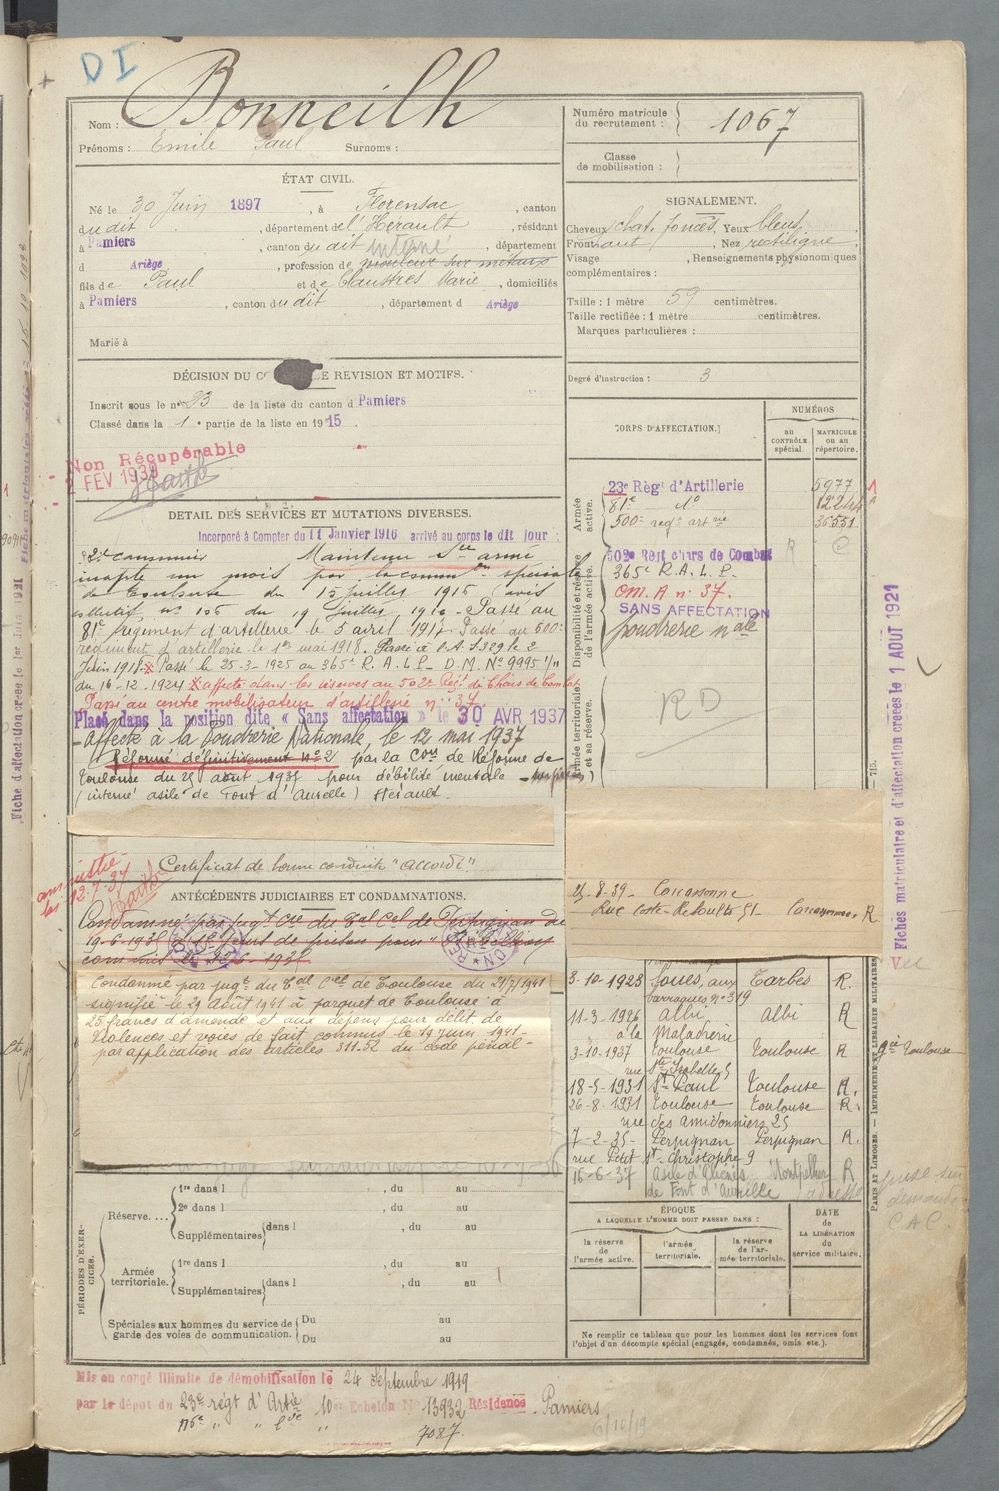 DI
Bonneilh
Nom :
Prénoms : Emile Paul Surnoms :
Numéro matricule
du recrutement : 1067
Classe
de mobilisation :
ÉTAT CIVIL.
Né le 30 Juin 1897, à Florensac, canton
dudit, département de l'Hérault, résidant
à Pamiers, canton dudit interné, département
d Ariège, profession de
fils de Paul et de Claustres Marie, domiciliés
à Pamiers, canton dudit, département d Ariège
Marié à
SIGNALEMENT.
Cheveux chat. foncés, Yeux bleus,
Front haut, Nez rectiligne,
Visage , Renseignements physionomiques
complémentaires :
Taille : 1 mètre 59 centimètres.
Taille rectifiée : 1 mètre centimètres.
Marques particulières :
Degré d'instruction : 3
DÉCISION DU REVISION ET MOTIFS.
Inscrit sous le n° 23 de la liste du canton d Pamiers
Classé dans la 1e partie de la liste en 1915.
Non Récupérable
2 FEV 1939
CORPS D'AFFECTATION.
NUMÉROS
au
CONTRÔLE
spécial.
MATRICULE
ou au
répertoire.
Armée
active.
23e Règt d'Artillerie 6977
81e do 12244
500e reg. art 36551
Disponibilité et réserve
de l'armée active.
502e Regt chars de Combat R
365e R.A.L.P.
cm. A n° 37.
SANS AFFECTATION
poudrerie nale
Armée territoriale
et sa réserve.
RD
DÉTAIL DES SERVICES ET MUTATIONS DIVERSES.
Incorporé à Compter du 11 Janvier 1916 arrivé au corps le dit jour
Maintenu Sce armé
inapte un mois par la comm on spéciale
de Toulouse du 13 juillet 1916 (avis
collectif no 106 du 19 juillet 1916 - Passé au
81e régiment d'artillerie le 5 avril 1917 - Passé au 500e
régiment d'artillerie le 1er mai 1918. Passé à l'A.S 329 le 2
Juin 1918. x Passé le 25-3-1925 au 365e R.A.L.P. D.M. No 9995 1/11
du 16-12-1924 x affecté dans les réserves au 502e Rég. de Chars de Combat
Passé au centre mobilisateur d'artillerie n° 37.
Placé dans la position dite « Sans affectation » le 30 AVR 1937
Affecté à la Poudrerie Nationale, le 12 mai 1937
Réformé définitivement No 2 par la Con de Réforme de
Toulouse du 25 août 1937 pour débilité mentale
(interné asile de Font d'Aurelle) Hérault.
Certificat de bonne conduite "accordé"
amnistié
loi 12-7-37
ANTÉCÉDENTS JUDICIAIRES ET CONDAMNATIONS.
Condamné par jugt Cre du Tal Cel de Perpignan du
19-6-1935
Condamné par jugt du Tal Cel de Toulouse du 21/7/1941
signifié le 29 Août 1941 à parquet de Toulouse à
25 francs d'amende et aux dépens pour délit de
violences et voies de fait commis le 19 juin 1941 -
par application des articles 311.52 du code pénal -
25-8-39 - Carcassonne
Rue Coste-Reboulh 51 - Carcassonne. R
3-10-1923 Soues, aux Tarbes R.
baraques, no 319
11-3-1926 Albi albi R
à la Maladrerie
3-10-1937 Toulouse Toulouse R
rue Ste Isabelle 5
18-5-1931 St Paul Toulouse R.
26-8-1931 Toulouse Toulouse R.
rue des amidonniers 25
7-2-35 - Perpignan Perpignan R.
rue Petit St-Christophe 9
16-6-37 asile d'aliénés Montpellier R
de Font d'Aurelle
PÉRIODES D'EXERCICES.
Réserve....
1re dans l , du au
2e dans l , du au
Supplémentaires dans l , du au
Armée
territoriale.
1re dans l , du au
Supplémentaires dans l , du au
Spéciales aux hommes du service de
garde des voies de communication.
Du au
Du au
ÉPOQUE
A LAQUELLE L'HOMME DOIT PASSER DANS :
la réserve
de
l'armée active.
l'armée
territoriale.
la réserve
de l'ar-
mée territoriale.
DATE
de
LA LIBÉRATION
du
service militaire.
Ne remplir ce tableau que pour les hommes dont les services font
l'objet d'un décompte spécial (engagés, condamnés, omis etc.).
Mis en congé illimité de démobilisation le 24 Septembre 1919
par le dépot du 23e régt d'Artie 10e Echelon No 13932 Résidence Pamiers
7087
Fiches matriculaire et d'affectation créées le 1 AOUT 1921
Vu
PARIS ET LIMOGES. — IMPRIMERIE ET LIBRAIRIE MILITAIRES
Toulouse
demande
CAC.